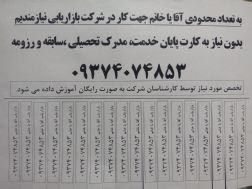 به تعداد محدودی آقا یا خانم جهت کار در شرکت بازاریابی نیازمندیم
بدون نیاز به کارت پایان خدمت، مدرک تحصیلی ،سابقه و رزومه
۰۹۳۷۴۰۷۴۸۵۳
تخصص مورد نیاز توسط کارشناسان شرکت به صورت رایگان آموزش داده می شود.